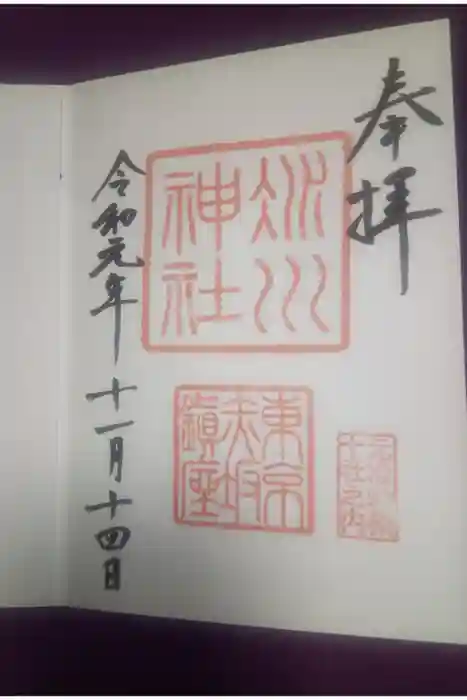 奉拝
氷川
神社
東京
赤坂
鎮座
令和元年十一月十四日